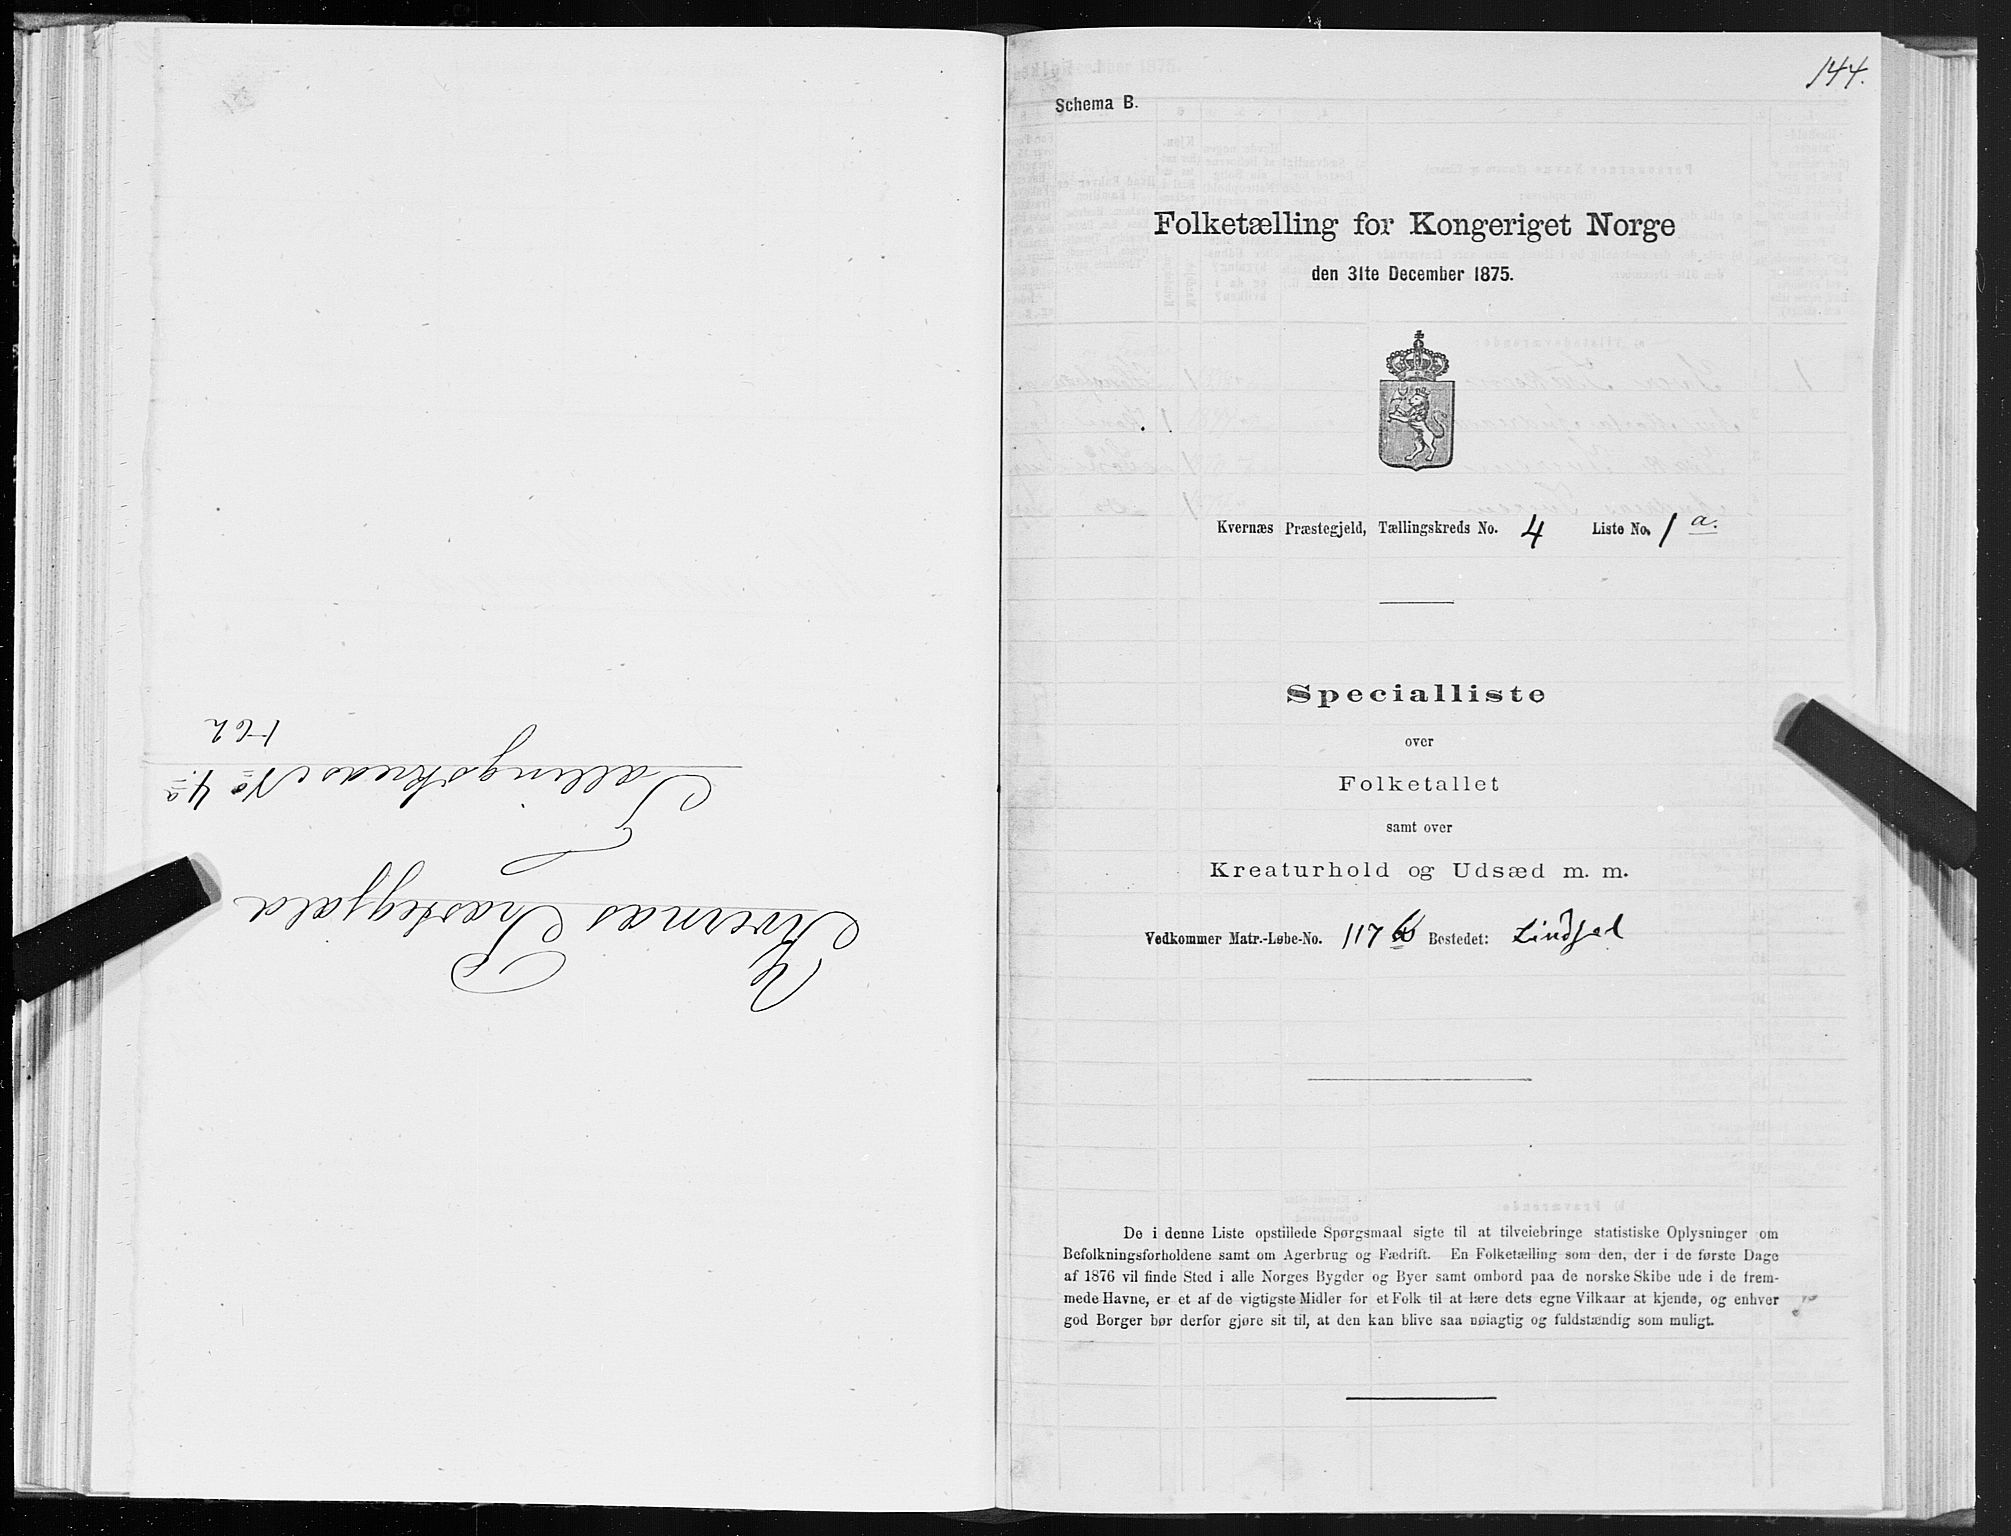 Kvernæs Præstegjæld
Tællingskreds No 4 a
1-62
144.
Schema B.
Folketælling for Kongeriget Norge
den 31te December 1875.
Kvernæs Præstegjeld, Tællingskreds No. 4 Liste No. 1 a.
Specialliste
over
Folketallet
samt over
Kreaturhold og Udsæd m. m.
Vedkommer Matr.-Løbe-No. 117 Bostedet:
De i denne Liste opstillede Spørgsmaal sigte til at tilveiebringe statistiske Oplysninger om
Befolkningsforholdene samt om Agerbrug og Fædrift. En Folketælling som den, der i de første Dage
af 1876 vil finde Sted i alle Norges Bygder og Byer samt ombord paa de norske Skibe ude i de frem-
mede Havne, er et af de vigtigste Midler for et Folk til at lære dets egne Vilkaar at kjende, og enhver
god Borger bør derfor gjøre sit til, at den kan blive saa nøiagtig og fuldstændig som muligt.